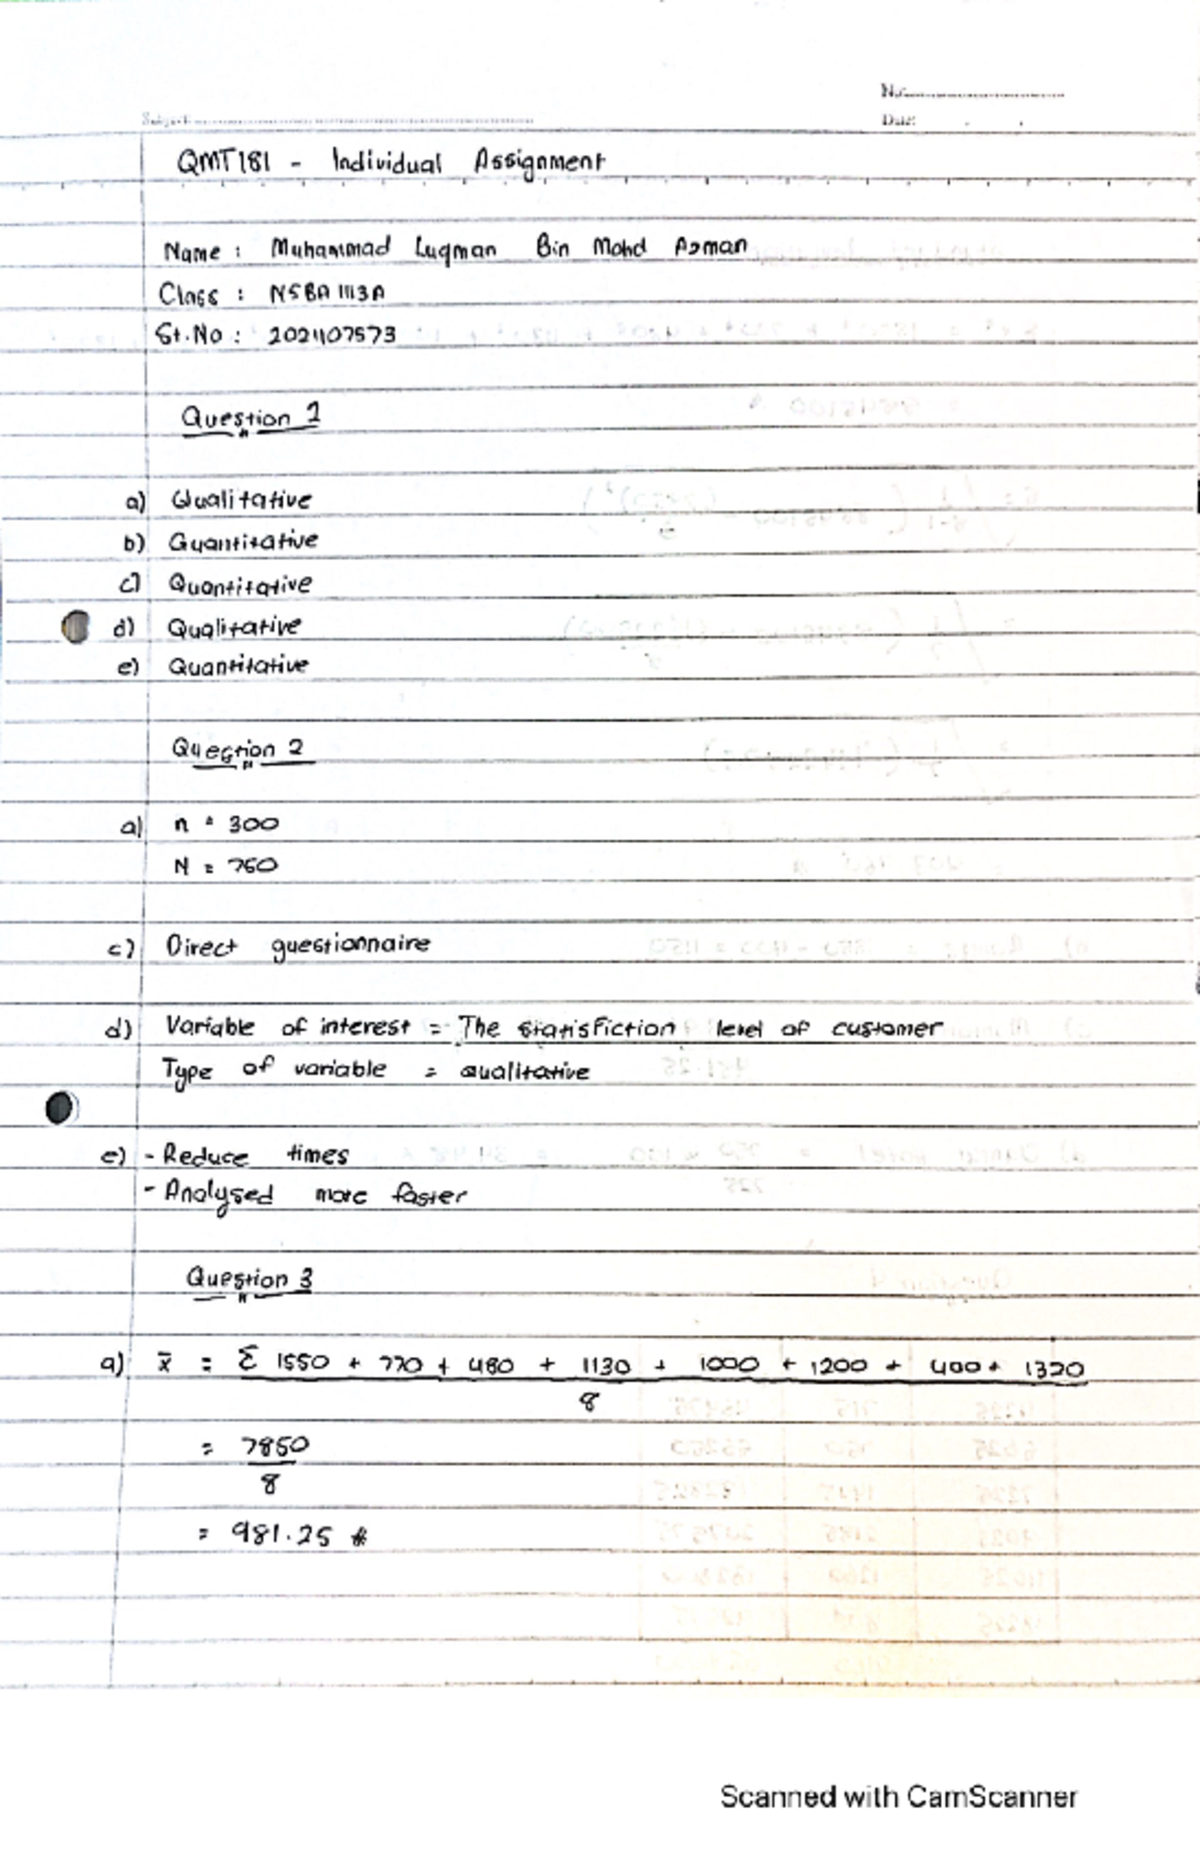 No:
Subject:
Date:
QMT181 - Individual Assignment
Name : Muhammad Luqman Bin Mohd Azman
Class : NSBA1113A
St.No : 2021107573
Question 1
a) Qualitative
b) Quantitative
c) Quantitative
d) Qualitative
e) Quantitative
Question 2
a) n = 300
N = 750
c) Direct questionnaire
d) Variable of interest = The statisfiction level of customer
Type of variable = qualitative
e) - Reduce times
- Analysed more faster
Question 3
a) x̄ = Σ 1550 + 770 + 480 + 1130 + 1000 + 1200 + 400 + 1320
8
= 7850
8
= 981.25 #
Scanned with CamScanner